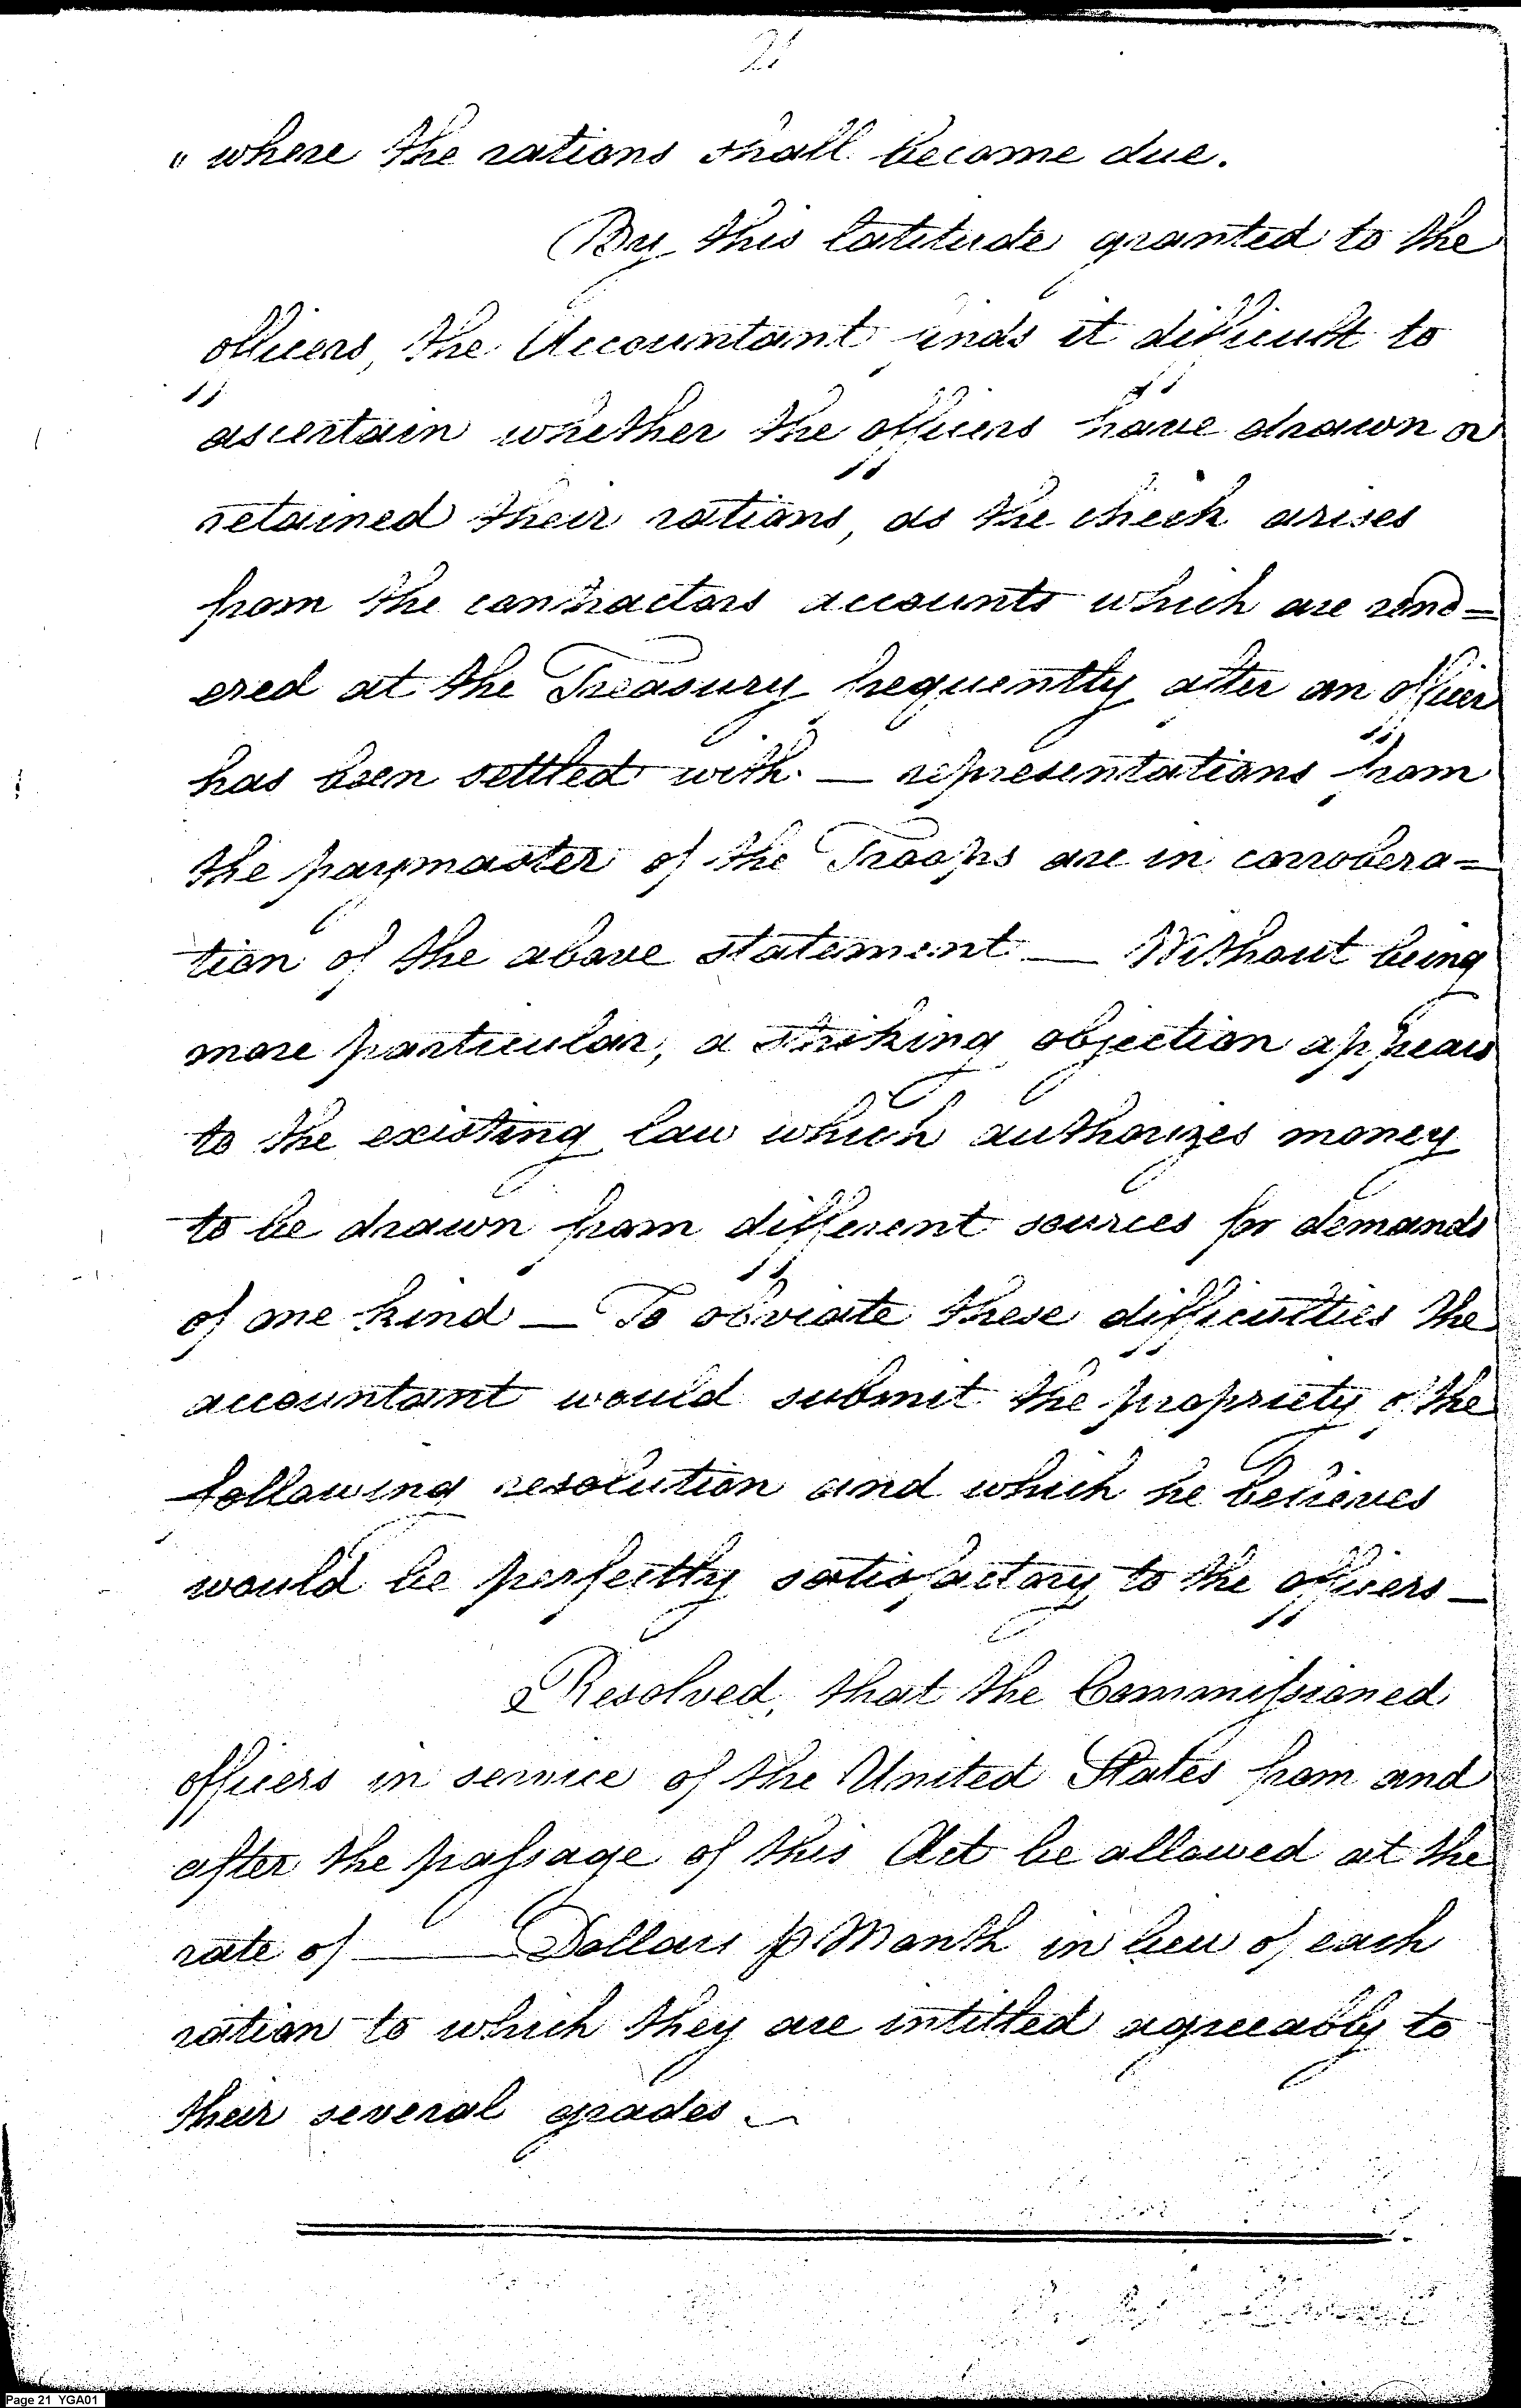 21
" where the rations shall become due.
By this latitude granted to the
officers, the Accountant finds it difficult to
ascertain whether the officers have drawn or
retained their rations, as the check arises
from the contractors accounts which are rend=
ered at the Treasury frequently after an officer
has been settled with. — representations from
the paymaster of the Troops are in corrobera=
tion of the above statement — Without being
more particular, a striking objection appears
to the existing law which authorizes money
to be drawn from different sources for demands
of one kind — To obviate these difficulties the
accountant would submit the propriety of the
following resolution and which he believes
would be perfectly satisfactory to the officers —
Resolved, that the Commissioned
officers in service of the United States from and
after the passage of this Act be allowed at the
rate of ——— Dollars p Month in lieu of each
ration to which they are intitled agreeably to
their several grades —
Page 21 YGA01